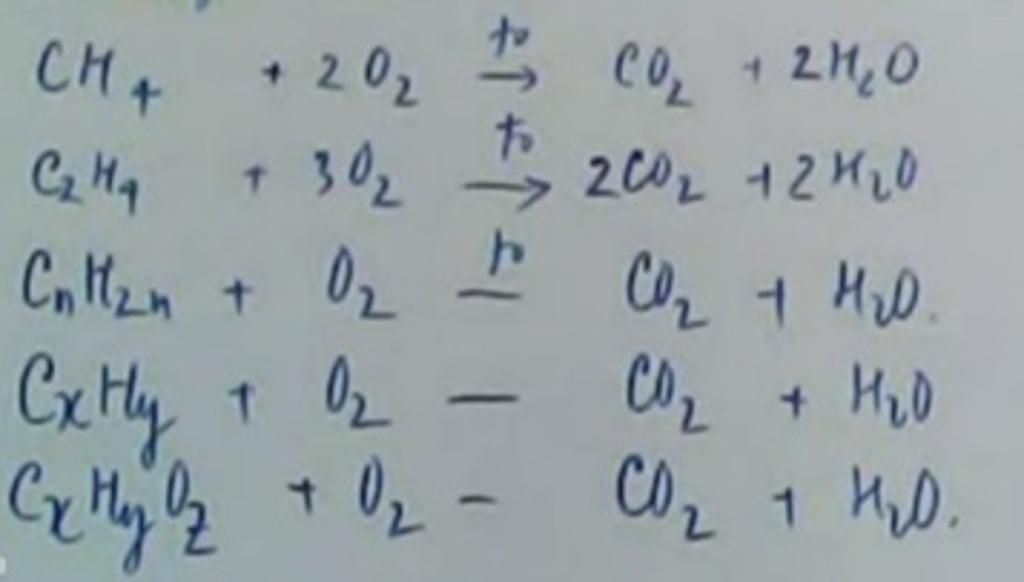 CH₄ + 2O₂ →^{t°} CO₂ + 2H₂O
C₂H₄ + 3O₂ →^{t°} 2CO₂ + 2H₂O
CₙH₂ₙ + O₂ —^{t°} CO₂ + H₂O.
CxHy + O₂ — CO₂ + H₂O
CxHyOz + O₂ – CO₂ + H₂O.